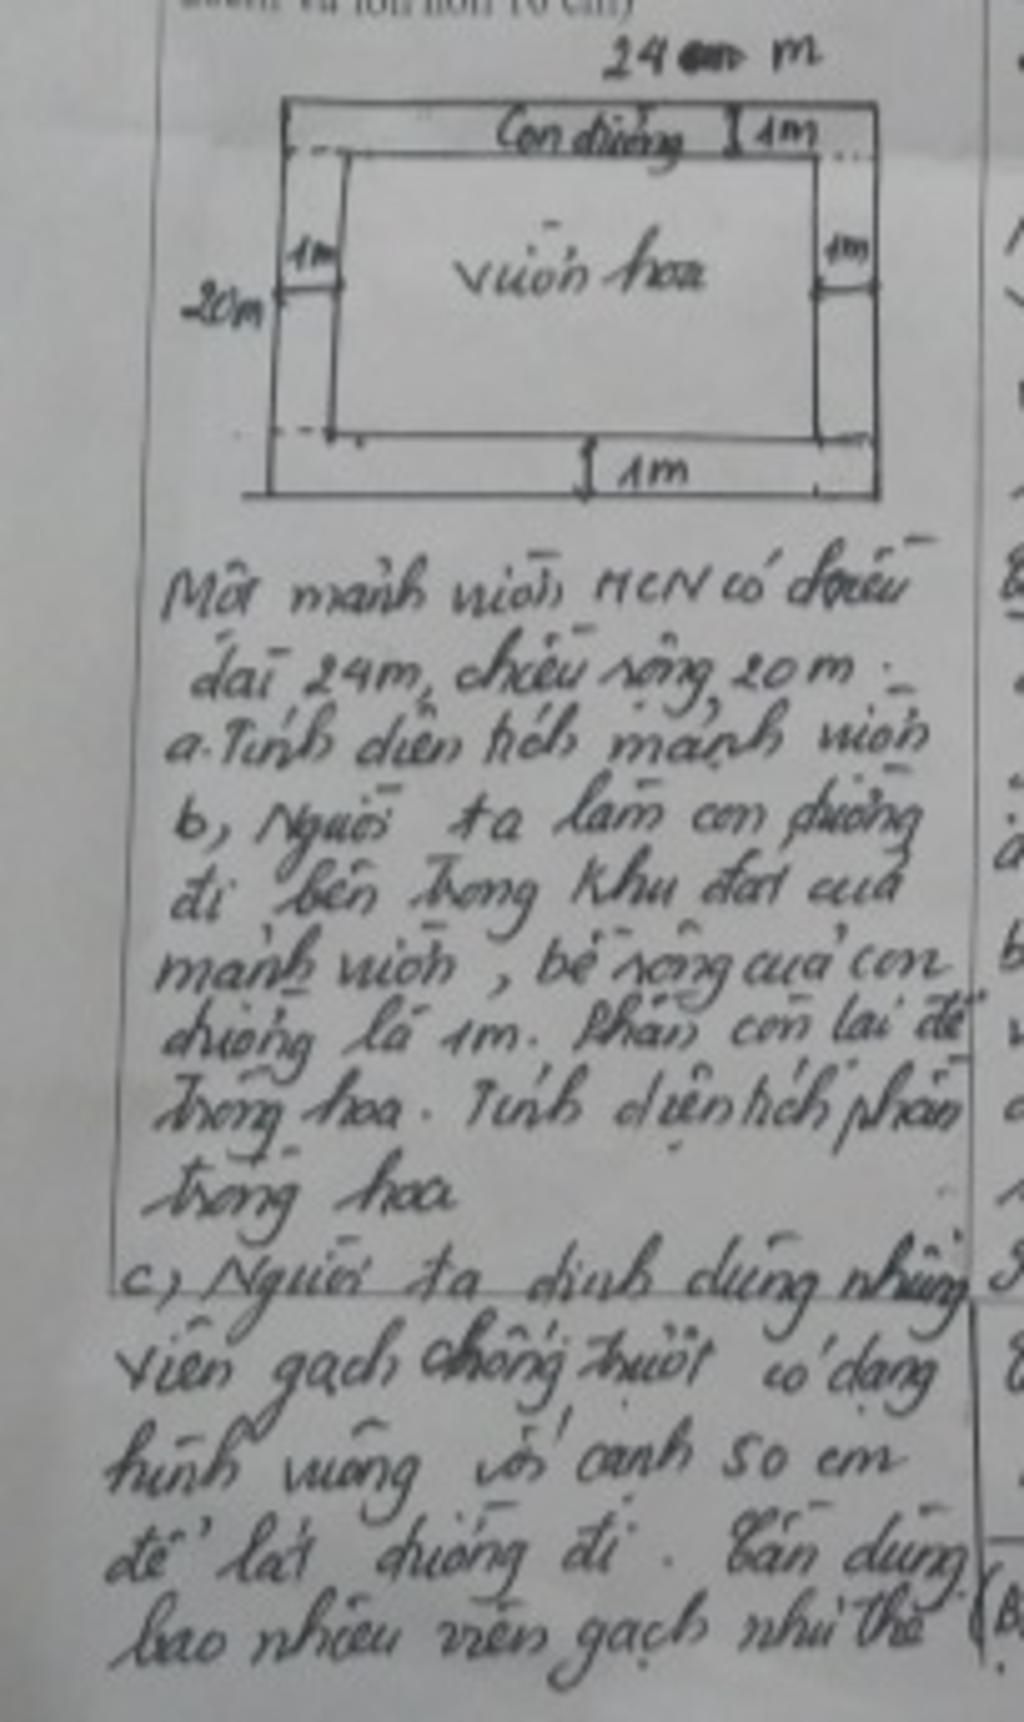 24 m
Con đường 1m
1m
vườn hoa
1m
20m
1m
Một mảnh vườn HCN có chiều
dài 24m, chiều rộng 20m.
a. Tính diện tích mảnh vườn
b, Người ta làm con đường
đi bên trong khu đất của
mảnh vườn, bề rộng của con
đường là 1m. Phần còn lại để
trồng hoa. Tính diện tích phần
trồng hoa
c, Người ta định dùng những
viên gạch chống trượt có dạng
hình vuông với cạnh 50 cm
để lát đường đi. Cần dùng
bao nhiêu viên gạch như thế